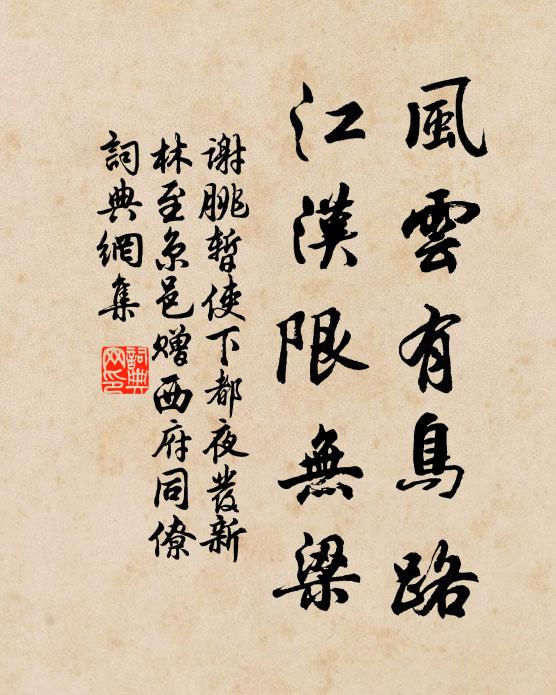 風雲有鳥路
江漢限無梁
謝朓暫使下都夜發新
林至京邑贈西府同僚
詞典網集
詞典網印